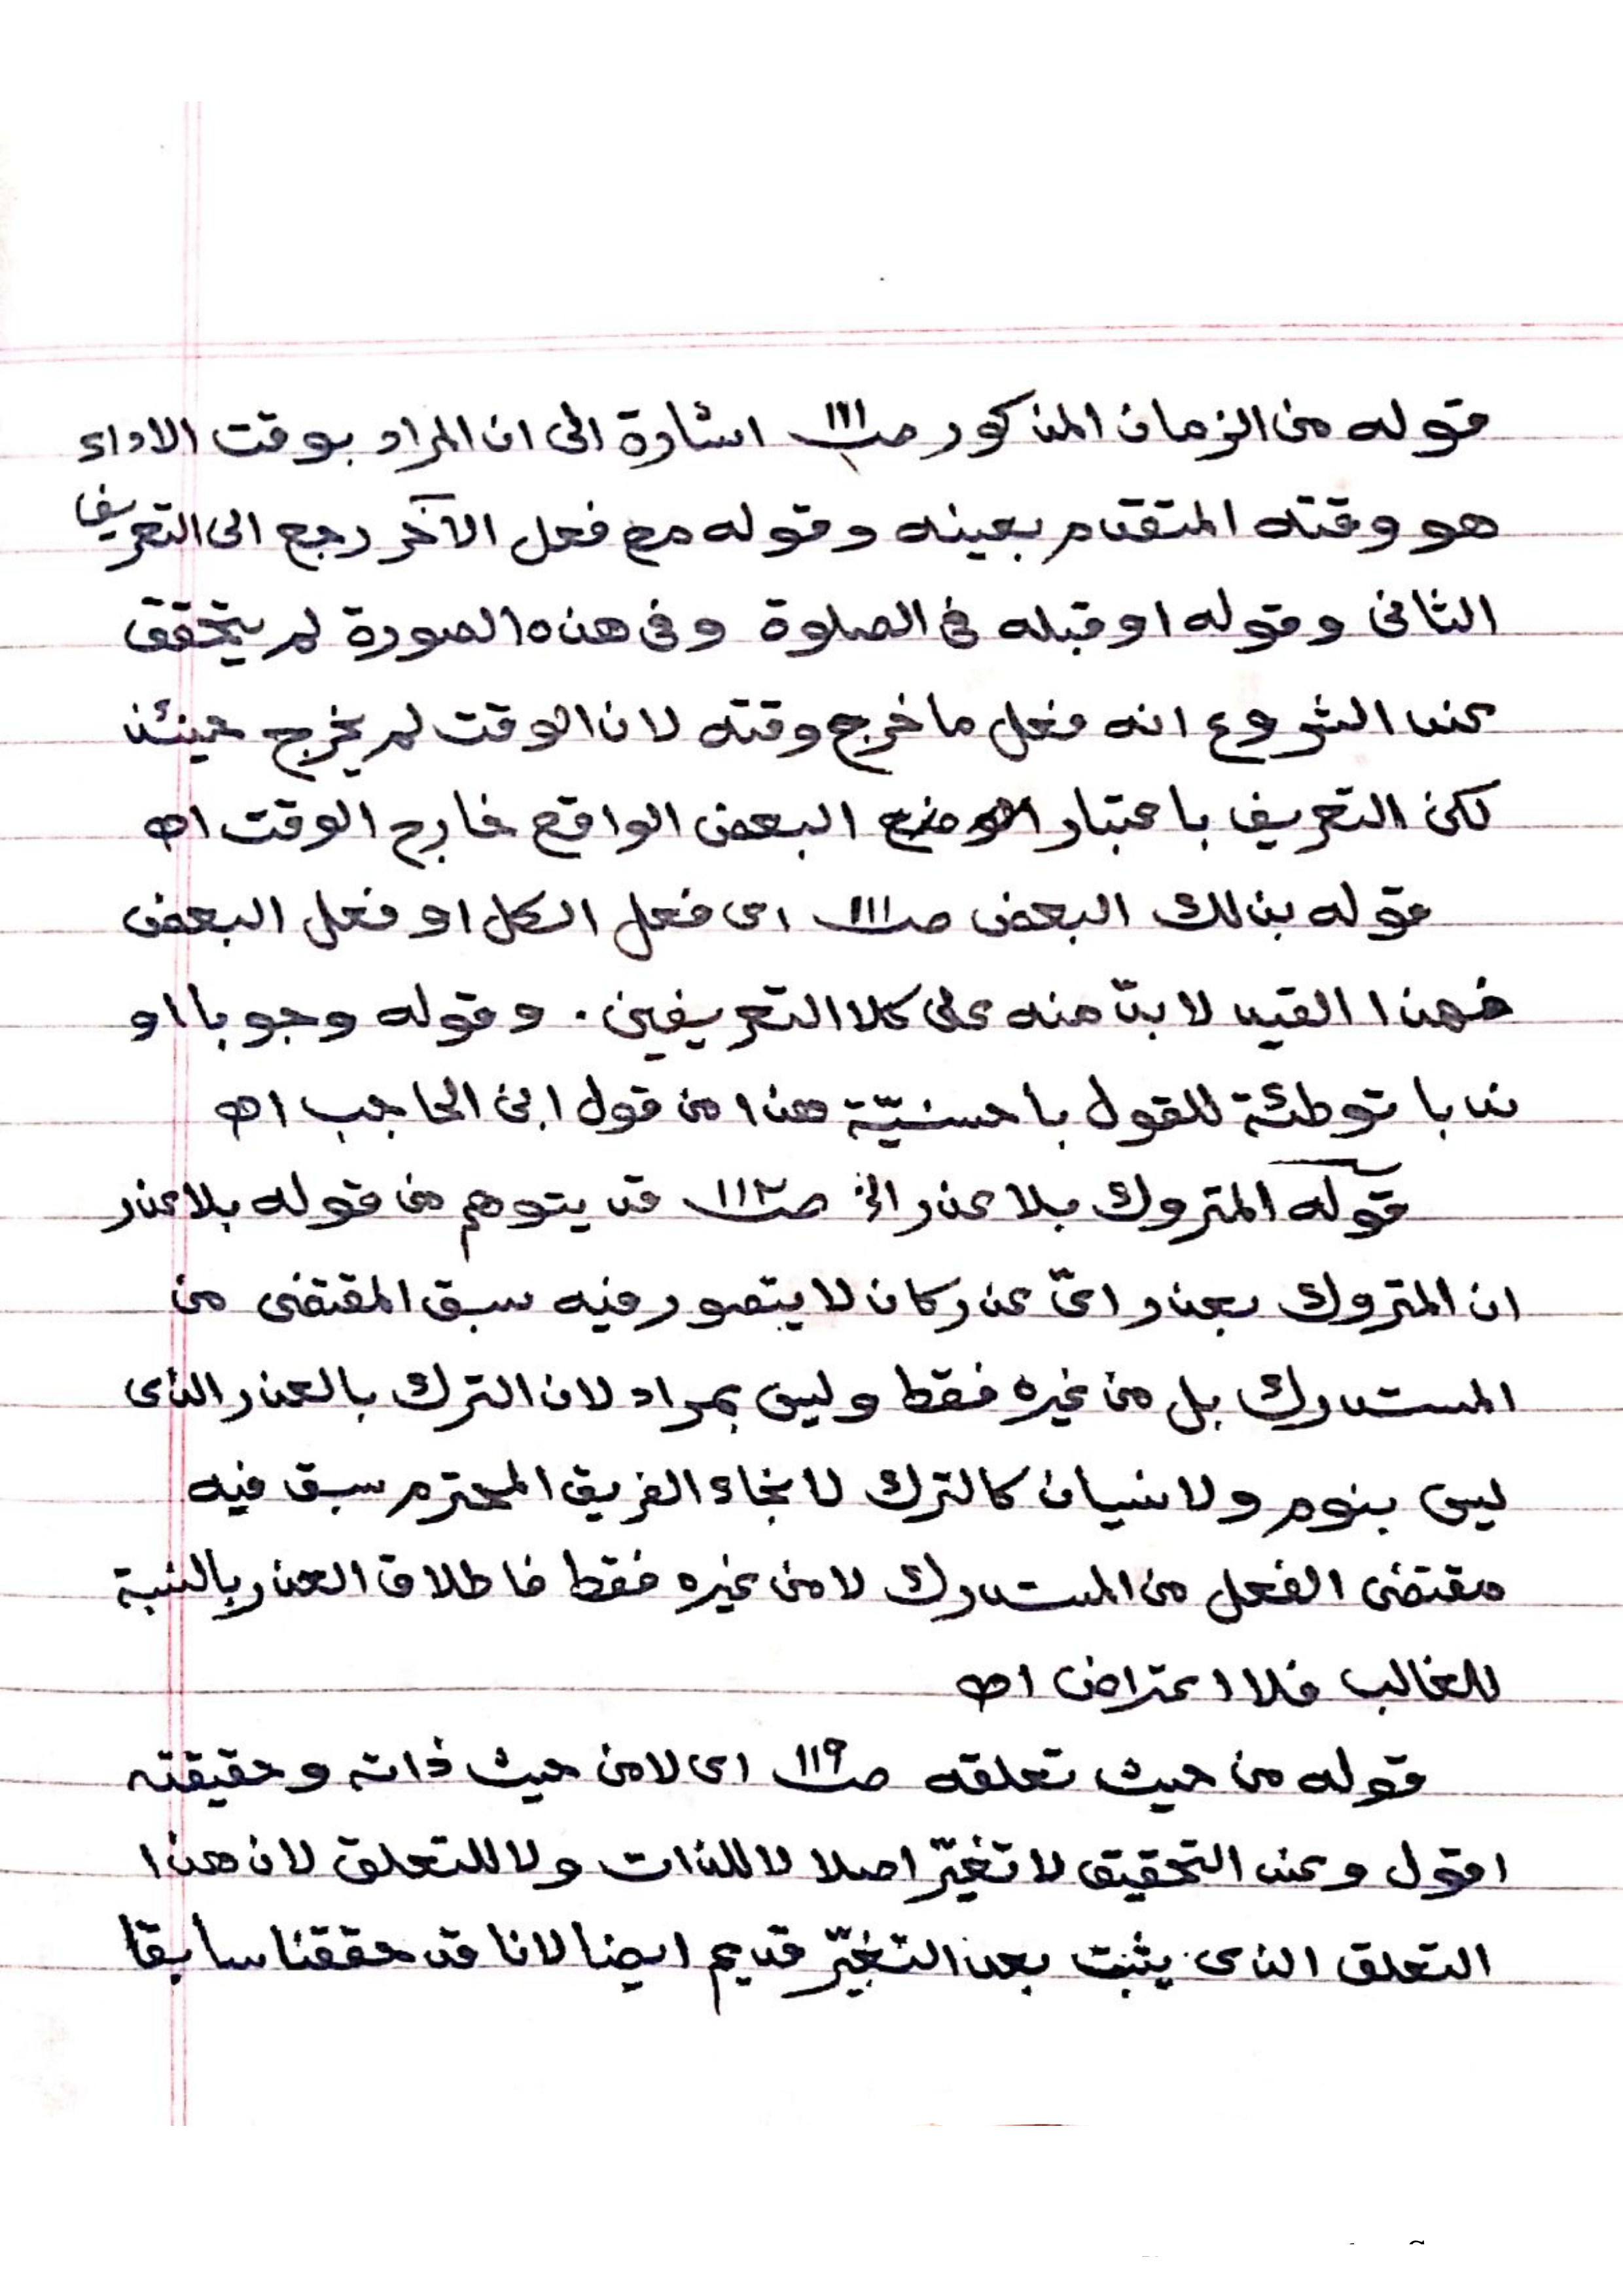 قوله من الزمان المذكور صـ١١١ اشارة الى ان المراد بوقت الاداء
هو وقته المتقدم بعينه وقوله مع فعل الآخر رجع الى التعريف
الثانى وقوله او قبله فى الصلوة وفى هذه الصورة لم يتحقق
عند الشروع انه فعل ما خرج وقته لان الوقت لم يخرج حينئذ
لكن التعريف باعتبار البعض الواقع خارج الوقت اهـ
قوله بذلك البعض صـ١١١ اى فعل الكل او فعل البعض
فهذا القيد لا بدّ منه على كلا التعريفين . وقوله وجوبا او
ندبا توطئة للقول باحسنيّة هذا من قول ابن الحاجب اهـ
قوله المتروك بلا عذر الخ صـ١١٢ قد يتوهم من قوله بلا عذر
ان المتروك بعذر اىّ عذر كان لا يتصور فيه سبق المقتضى من
المستدرك بل من غيره فقط وليس بمراد لان الترك بالعذر الذى
ليس بنوم ولا نسيان كالترك لانجاء الغريق المحترم سبق فيه
مقتضى الفعل من المستدرك لا من غيره فقط فاطلاق العذر بالنسبة
للغالب فلا اعتراض اهـ
قوله من حيث تعلقه صـ١١٩ اى لا من حيث ذاته وحقيقته
اقول وعند التحقيق لا تغيّر اصلا لا للذات ولا للتعلق لان هذا
التعلق الذى يثبت بعد التغيّر قديم ايضا لانا قد حققنا سابقا